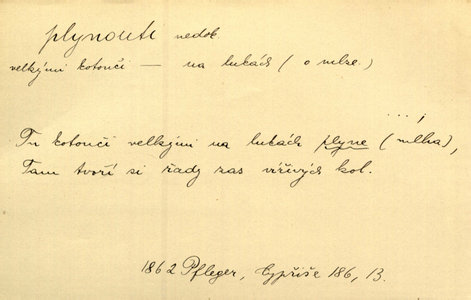 plynouti nedok.
velkými kotouči — na lukách (o mlze.)
...;
Tu kotouči velkými na lukách plyne (mlha),
Tam tvoří si řady zas vířivých kol.
1862 Pfleger, Cypřiše 186, B.